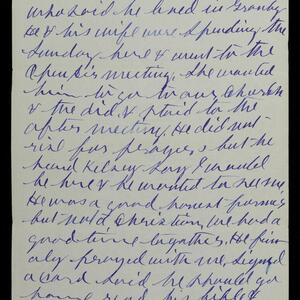 who said he lived in Granby
He & his wife were spending the
Sunday here & went to the
Open Air meeting. She wanted
him to go to our Church
& the did & staid to the
after meeting. He did not
rise for prayers but he
heard Kelsey say I would
be here & he wanted to see me.
He was a good honest
but not a Christian. We had a
good time together. He fin
ally prayed with me, signed
a card said he should go
home read his